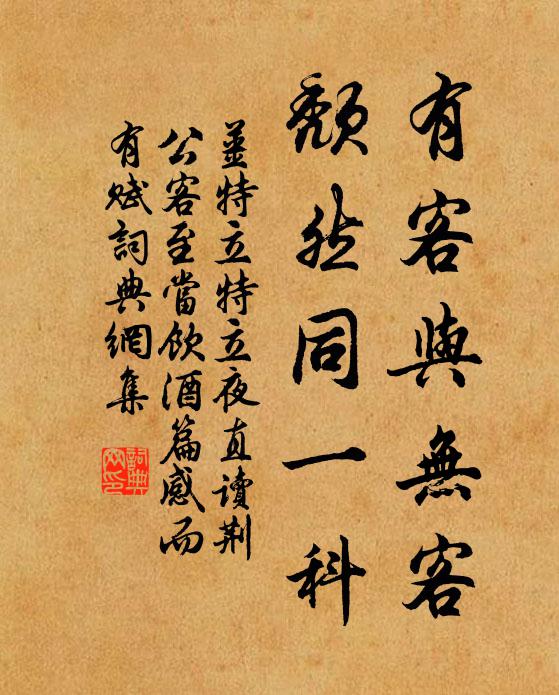 有客與無客
頹然同一科
姜特立特立夜直讀荆
公客至當飲酒篇感而
有賦詞典網集
詞典網印